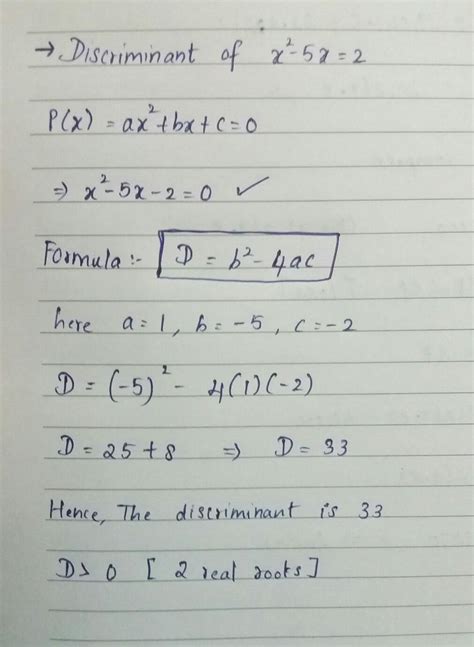 → Discriminant of x²-5x=2
P(x) = ax²+bx+c=0
⇒ x²-5x-2=0 ✓
Formula :- D = b²-4ac
here a=1, b=-5, c=-2
D = (-5)² - 4(1)(-2)
D = 25+8 ⇒ D = 33
Hence, The discriminant is 33
D> 0 [ 2 real roots]